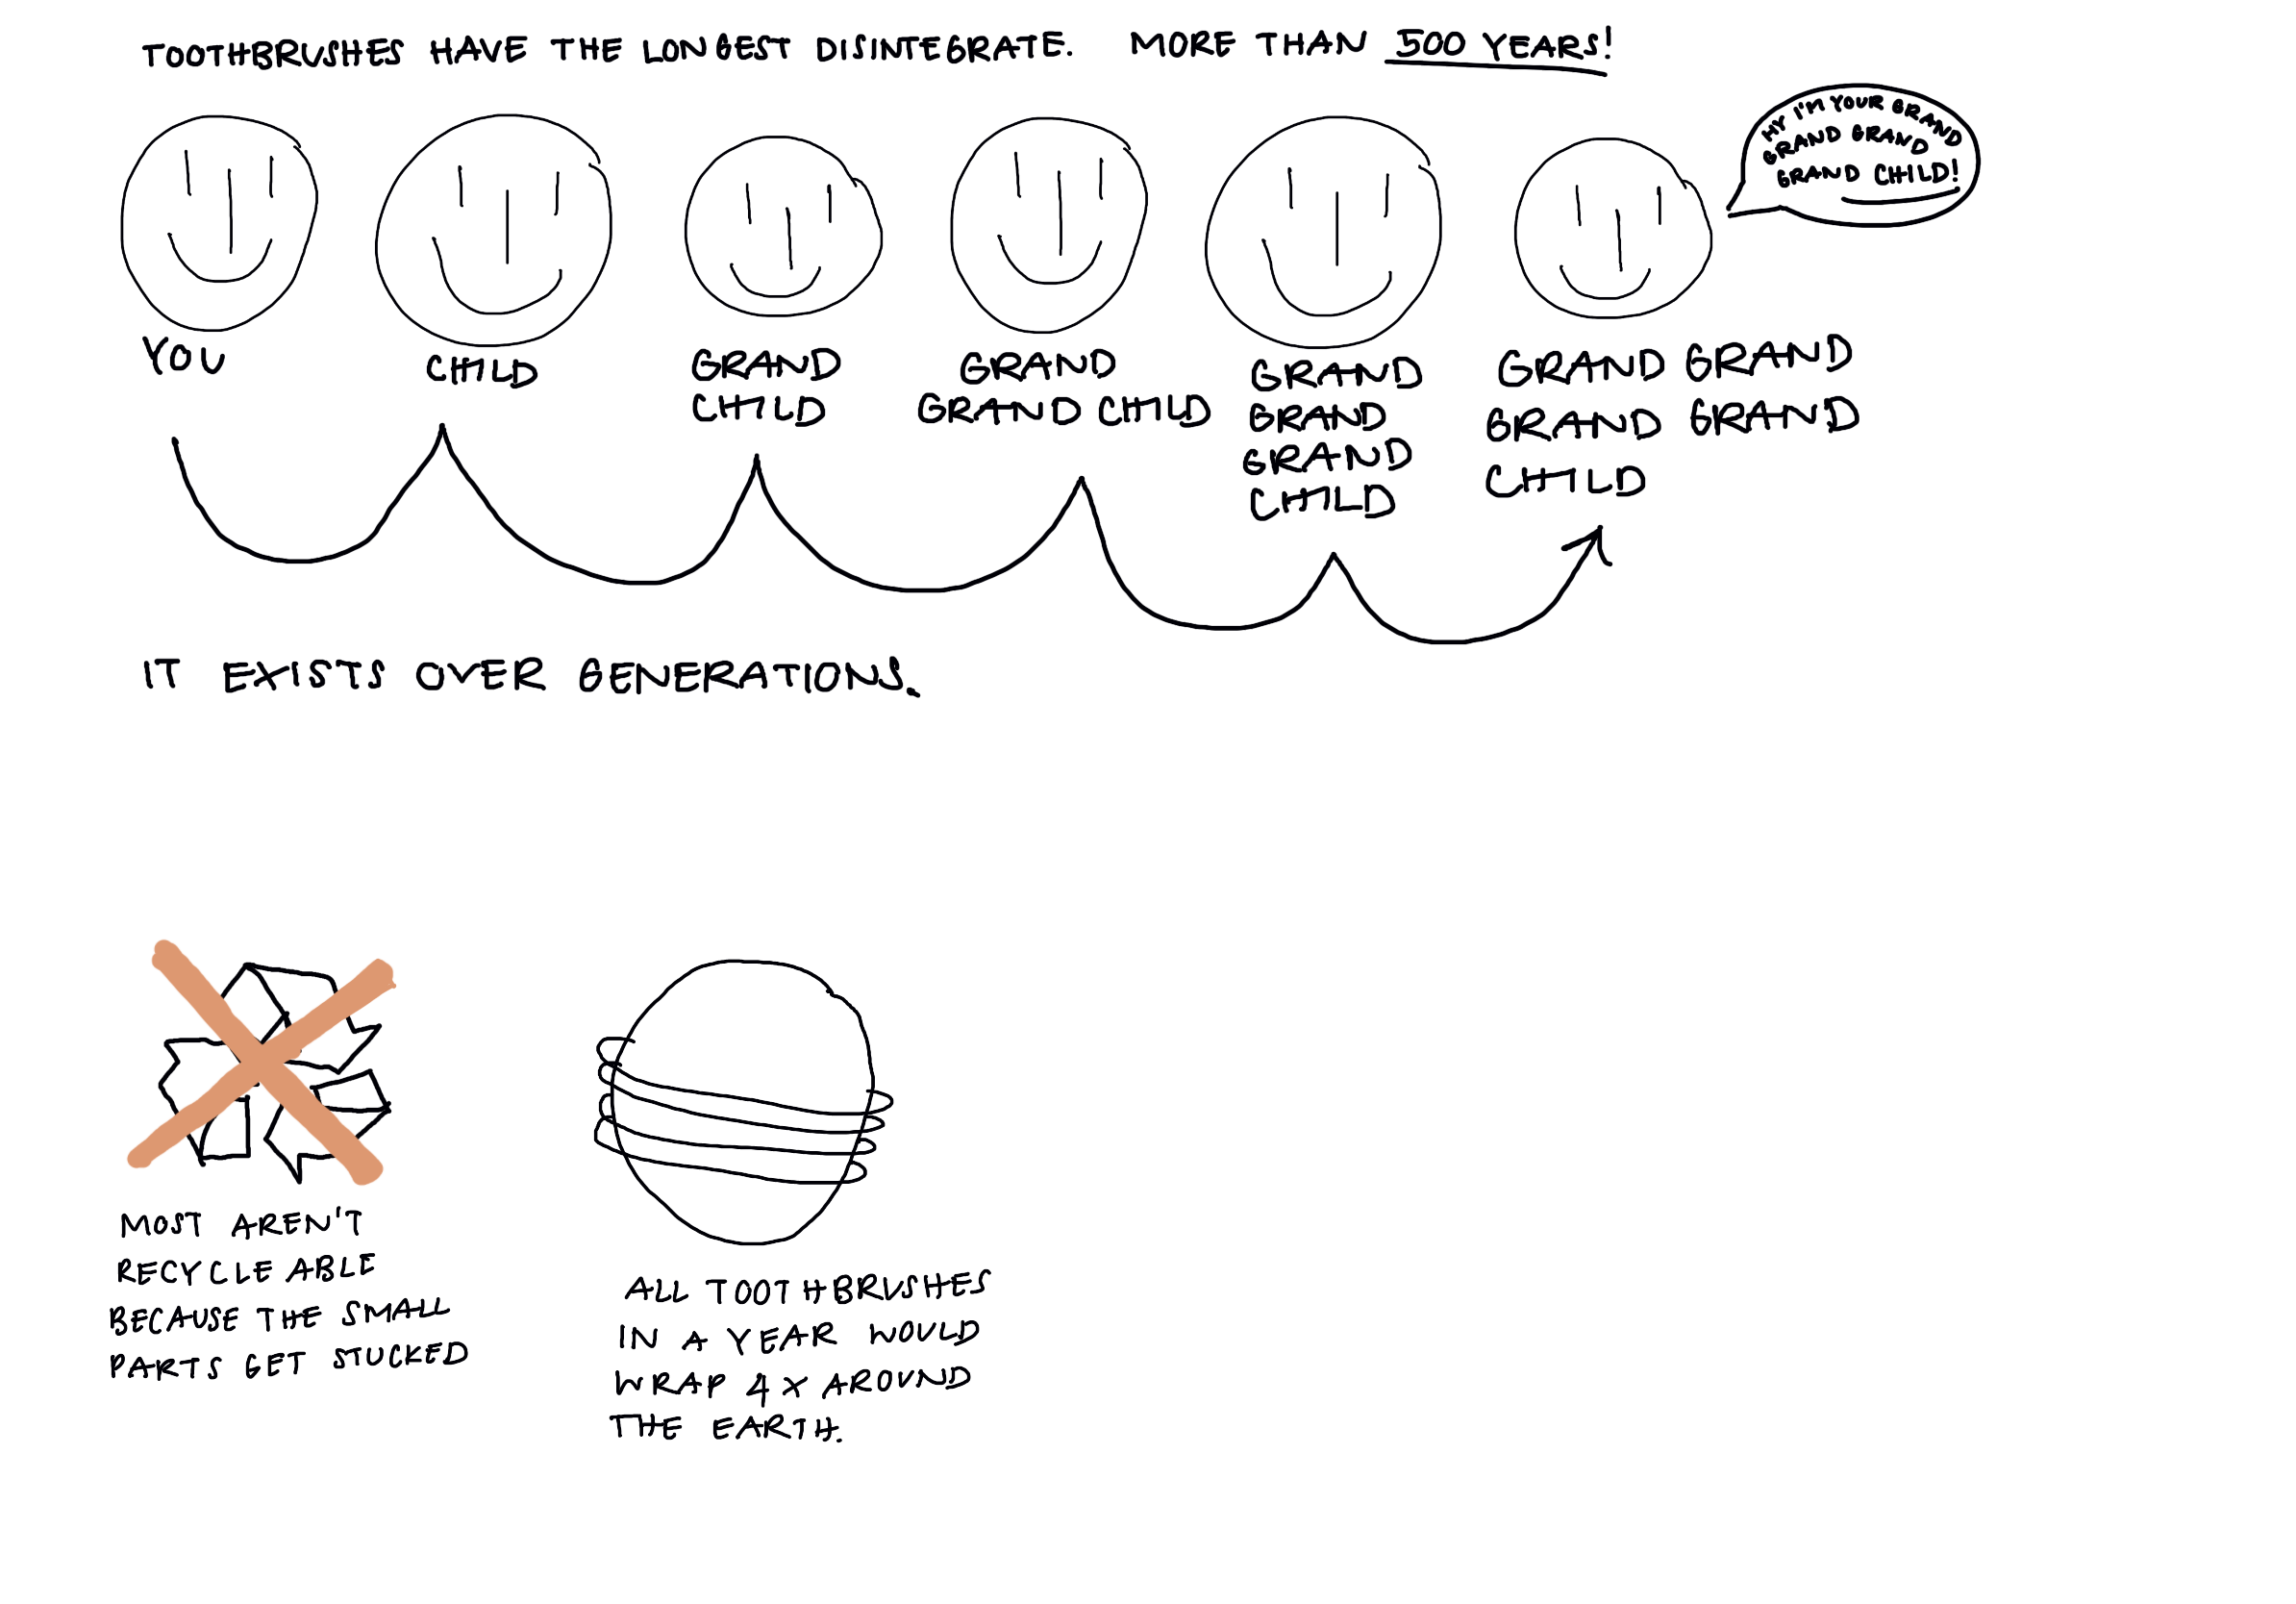 TOOTHBRUSHES HAVE THE LONGEST DISINTEGRATE. MORE THAN 500 YEARS!
HY I'M YOUR GRAND
GRAND GRAND
GRAND CHILD!
YOU
CHILD
GRAND
CHILD
GRAND
GRAND CHILD
GRAND
GRAND
GRAND
CHILD
GRAND GRAND
GRAND GRAND
CHILD
IT EXISTS OVER GENERATIONS.
MOST AREN'T
RECYCLEABLE
BECAUSE THE SMALL
PARTS GET STUCKED
ALL TOOTHBRUSHES
IN A YEAR WOULD
WRAP 4X AROUND
THE EARTH.